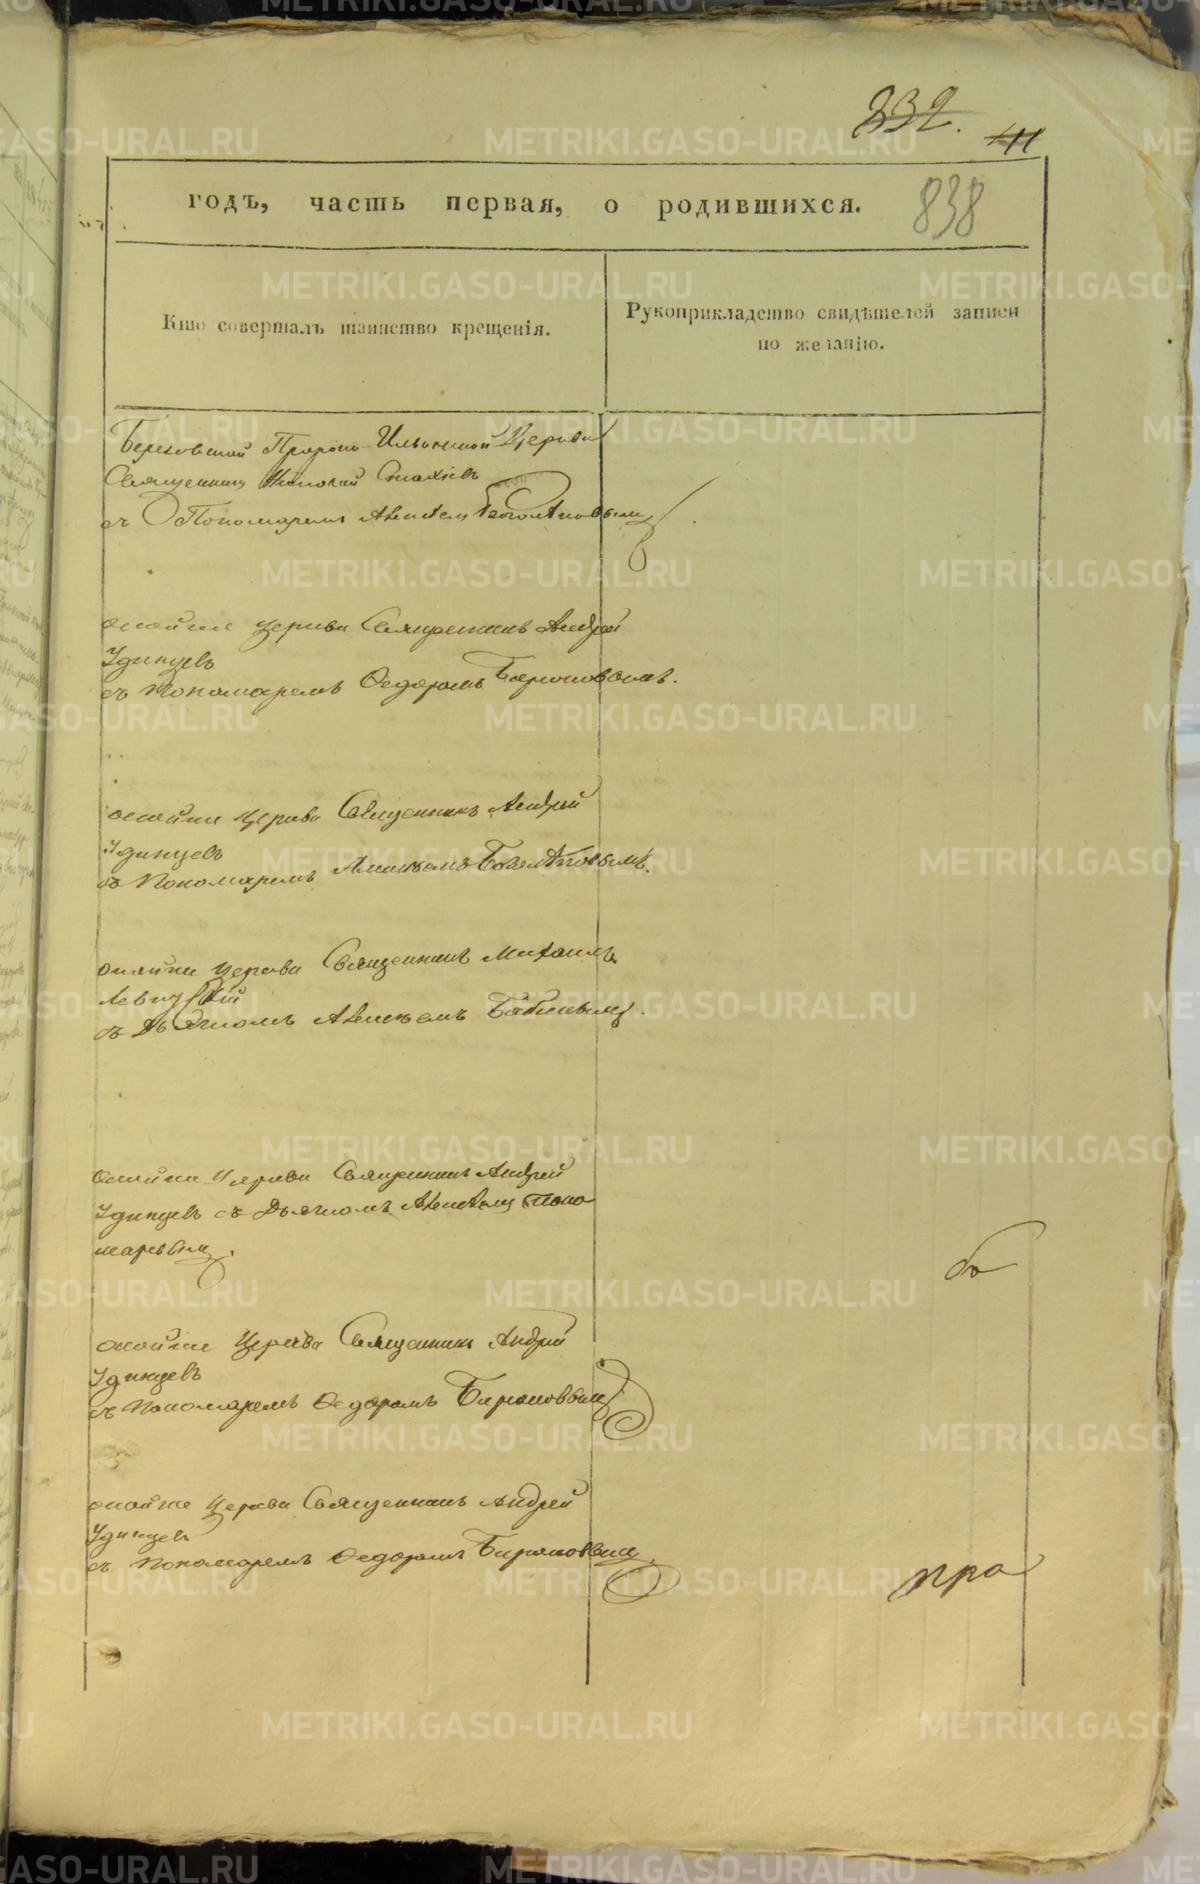 332.
411
годъ, часть первая, о родившихся.
838
Кто совершалъ таинство крещенія.
Рукоприкладство свидѣтелей записи
по желанію.
Березовской Пророко-Ильинской Церкви
Священникъ Николай
съ Пономаремъ Алексѣем Боголѣповымъ
оной же церкви Священникъ Андрей
Удинцевъ
съ Пономаремъ Ѳедоромъ Бирюковымъ.
оной же Церкви Священникъ Андрей
Удинцевъ
съ Пономаремъ Алексѣемъ Боголѣповымъ.
оной же Церкви Священникъ Михаилъ
Левицкій
съ Дьячкомъ Алексѣемъ
оной же Церкви Священникъ Андрей
Удинцевъ съ Дьячкомъ Алексѣемъ Поно
маревымъ.
бо
оной же Церкви Священникъ Андрей
Удинцевъ
съ Пономаремъ Ѳедоромъ Бирюковымъ
оной же Церкви Священникъ Андрей
Удинцевъ
съ Пономаремъ Ѳедоромъ Бирюковымъ.
пра
METRIKI.GASO-URAL.RU